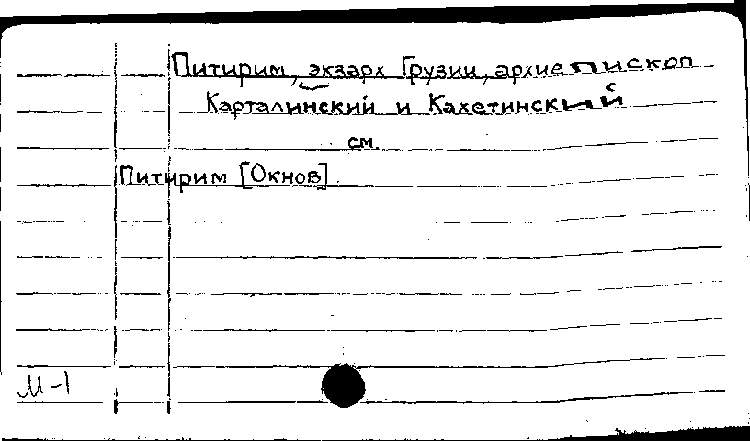 Питирим, экзарх Грузии, архиепископ
Карталинский и Кахетинский
см.
Питирим [Окнов]
М-1